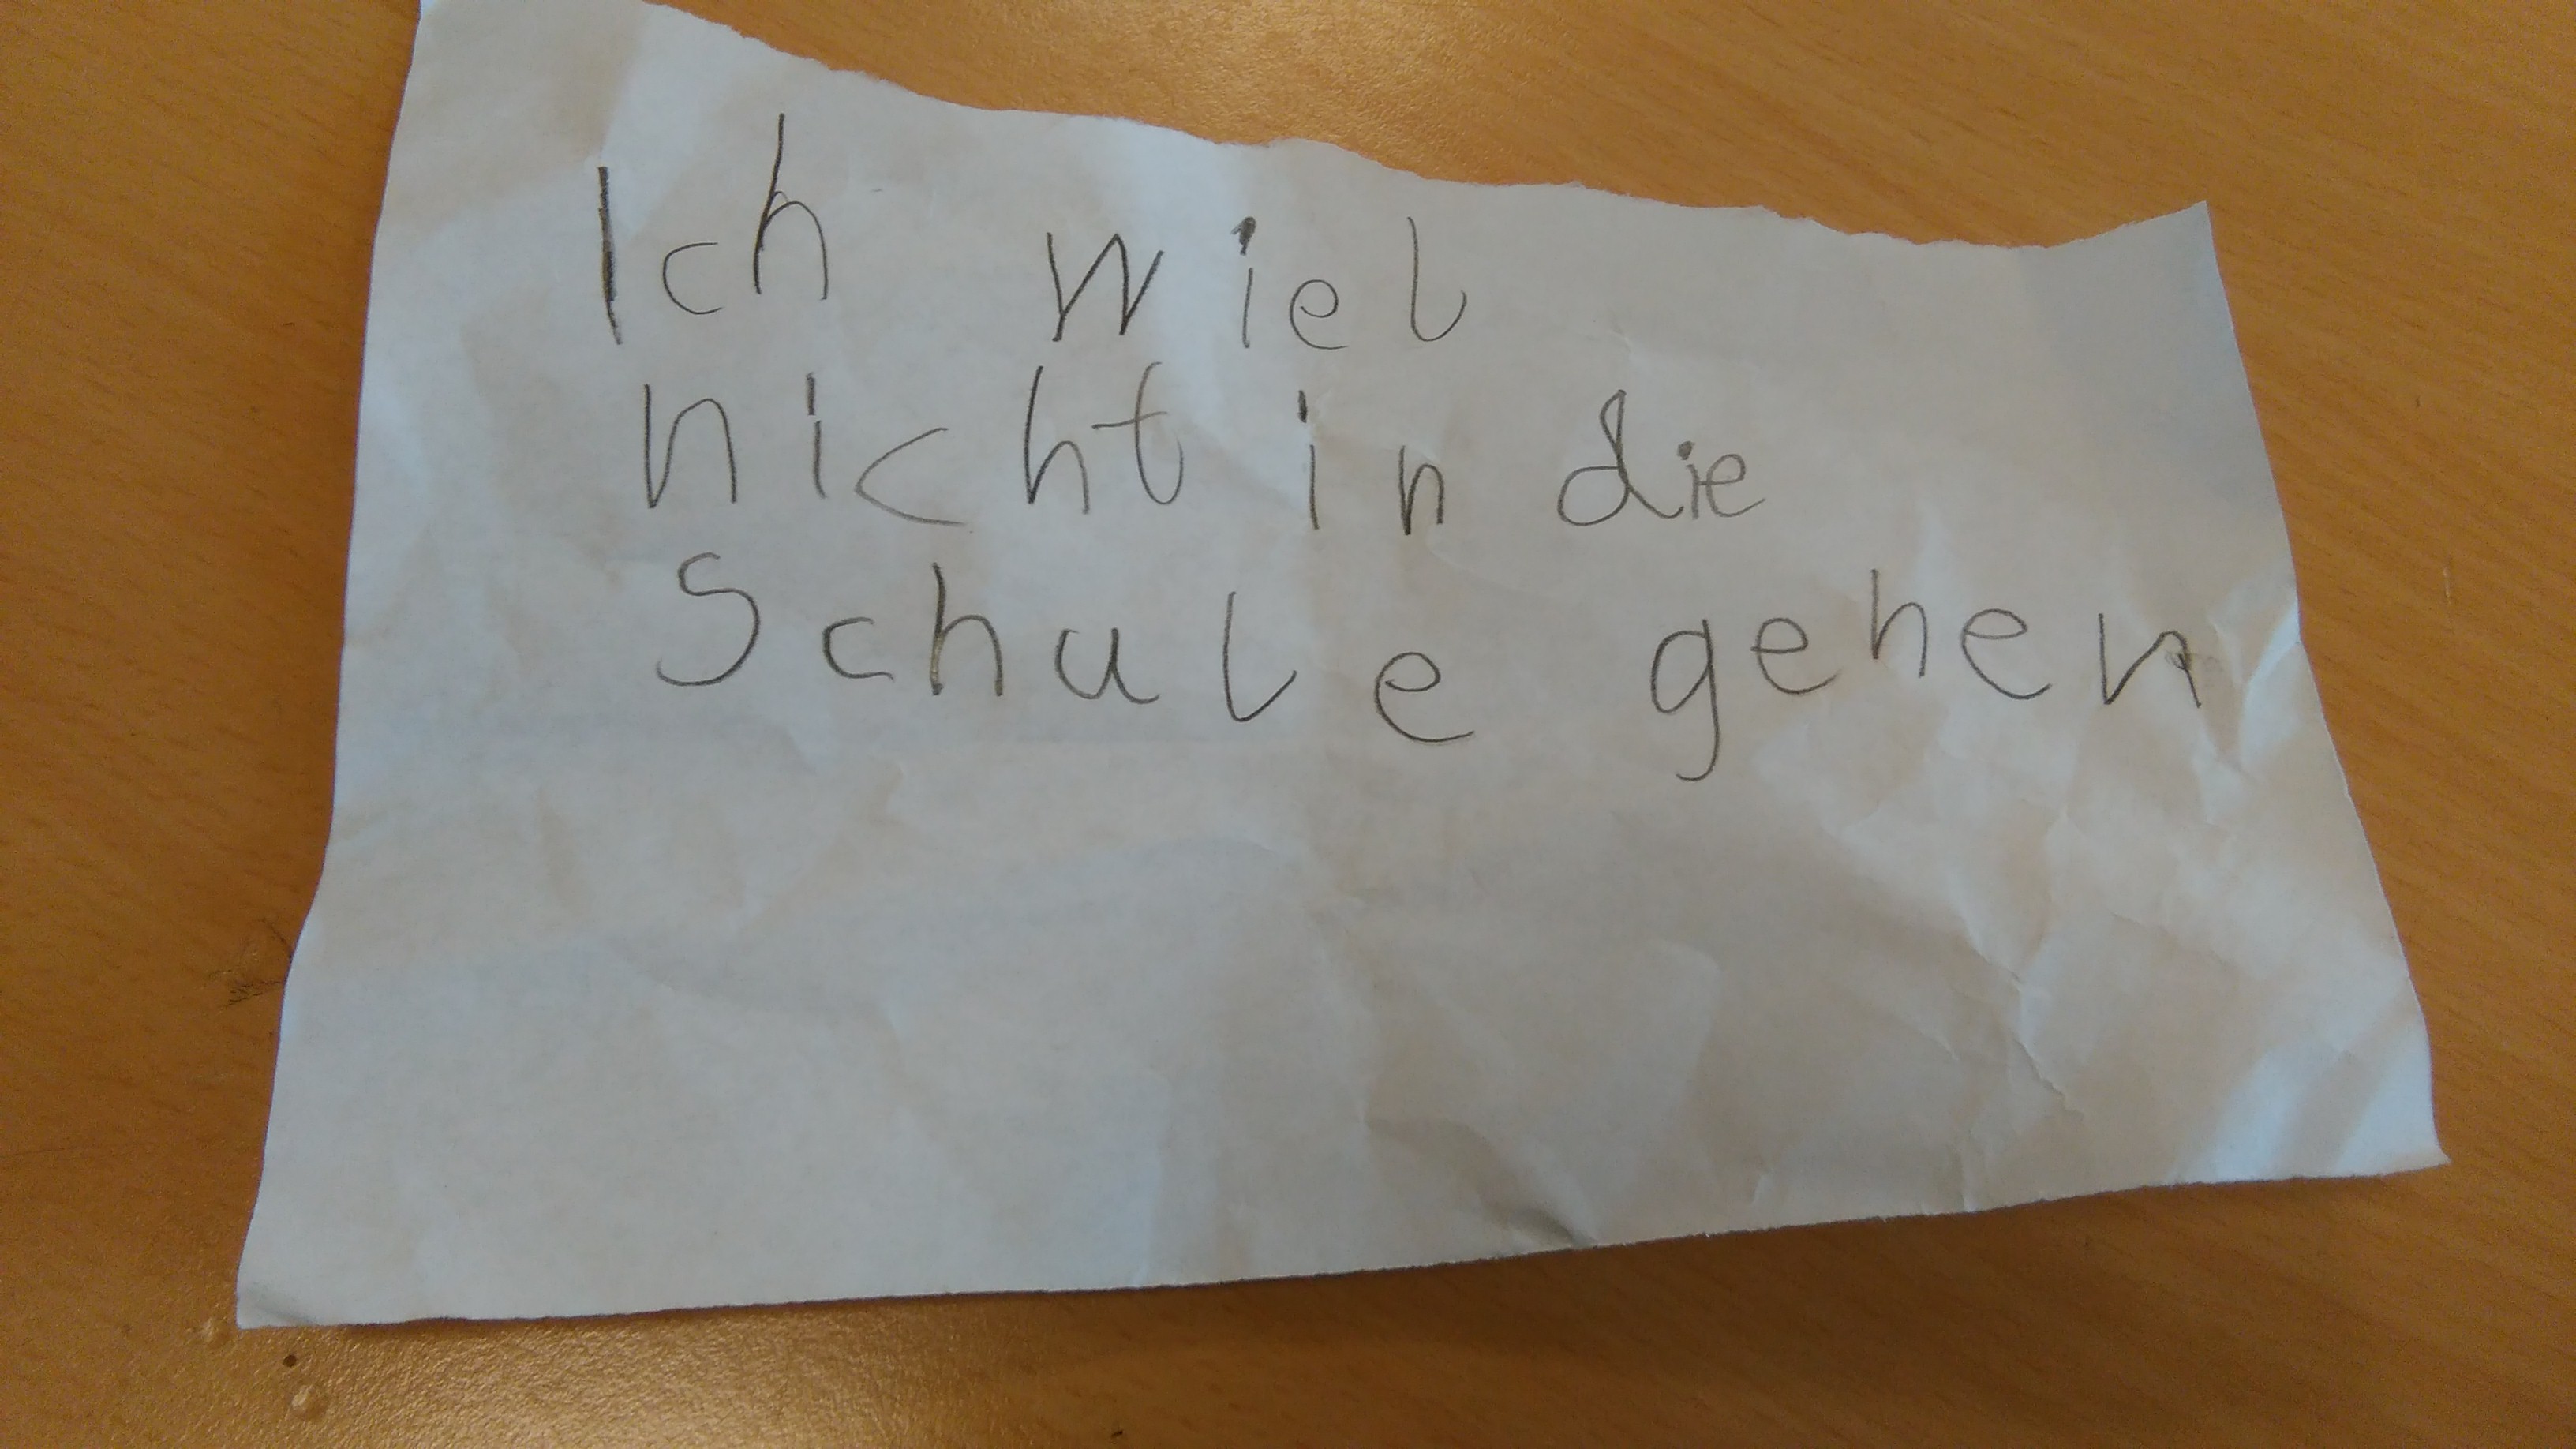 Ich wiel
nicht in die
Schule gehen